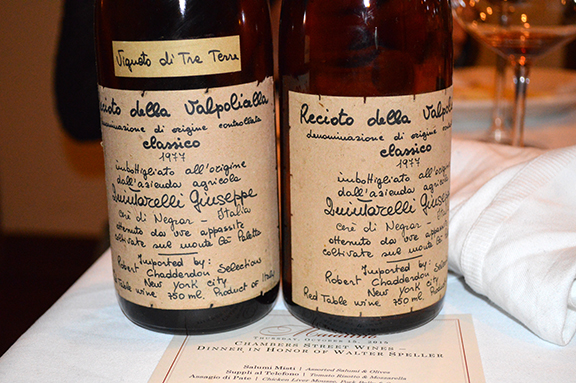 Vigneto di Tre Terre
Recioto della Valpolicella
denominazione di origine controllata
classico
1977
imbottigliato all'origine
dall'azienda agricola
Quintarelli Giuseppe
Cerè di Negrar - Italia
ottenuto da uve appassite
coltivate sul monte Cà Paletta
Imported by:
Robert Chadderdon Selection
New York city
Table wine 750 ml. Product of Italy
Recioto della Valpolicella
denominazione di origine cont
classico
1977
imbottigliato all'origine
dall'azienda agricola
Quintarelli Giuseppe
Cerè di Negrar -
ottenuto da uve appassite
coltivate sul monte Cà
Imported by:
Robert Chadderdon Selec
New York city
Red Table wine 750 ml. Product
Thursday, October 15, 2015
Chambers Street Wines –
Dinner in Honor of Walter Speller
Salumi Misti | Assorted Salumi & Olives
Supplì al Telefono | Tomato Risotto & Mozzarella
Assagio di Pate | Chicken Liver Mousse, Duck